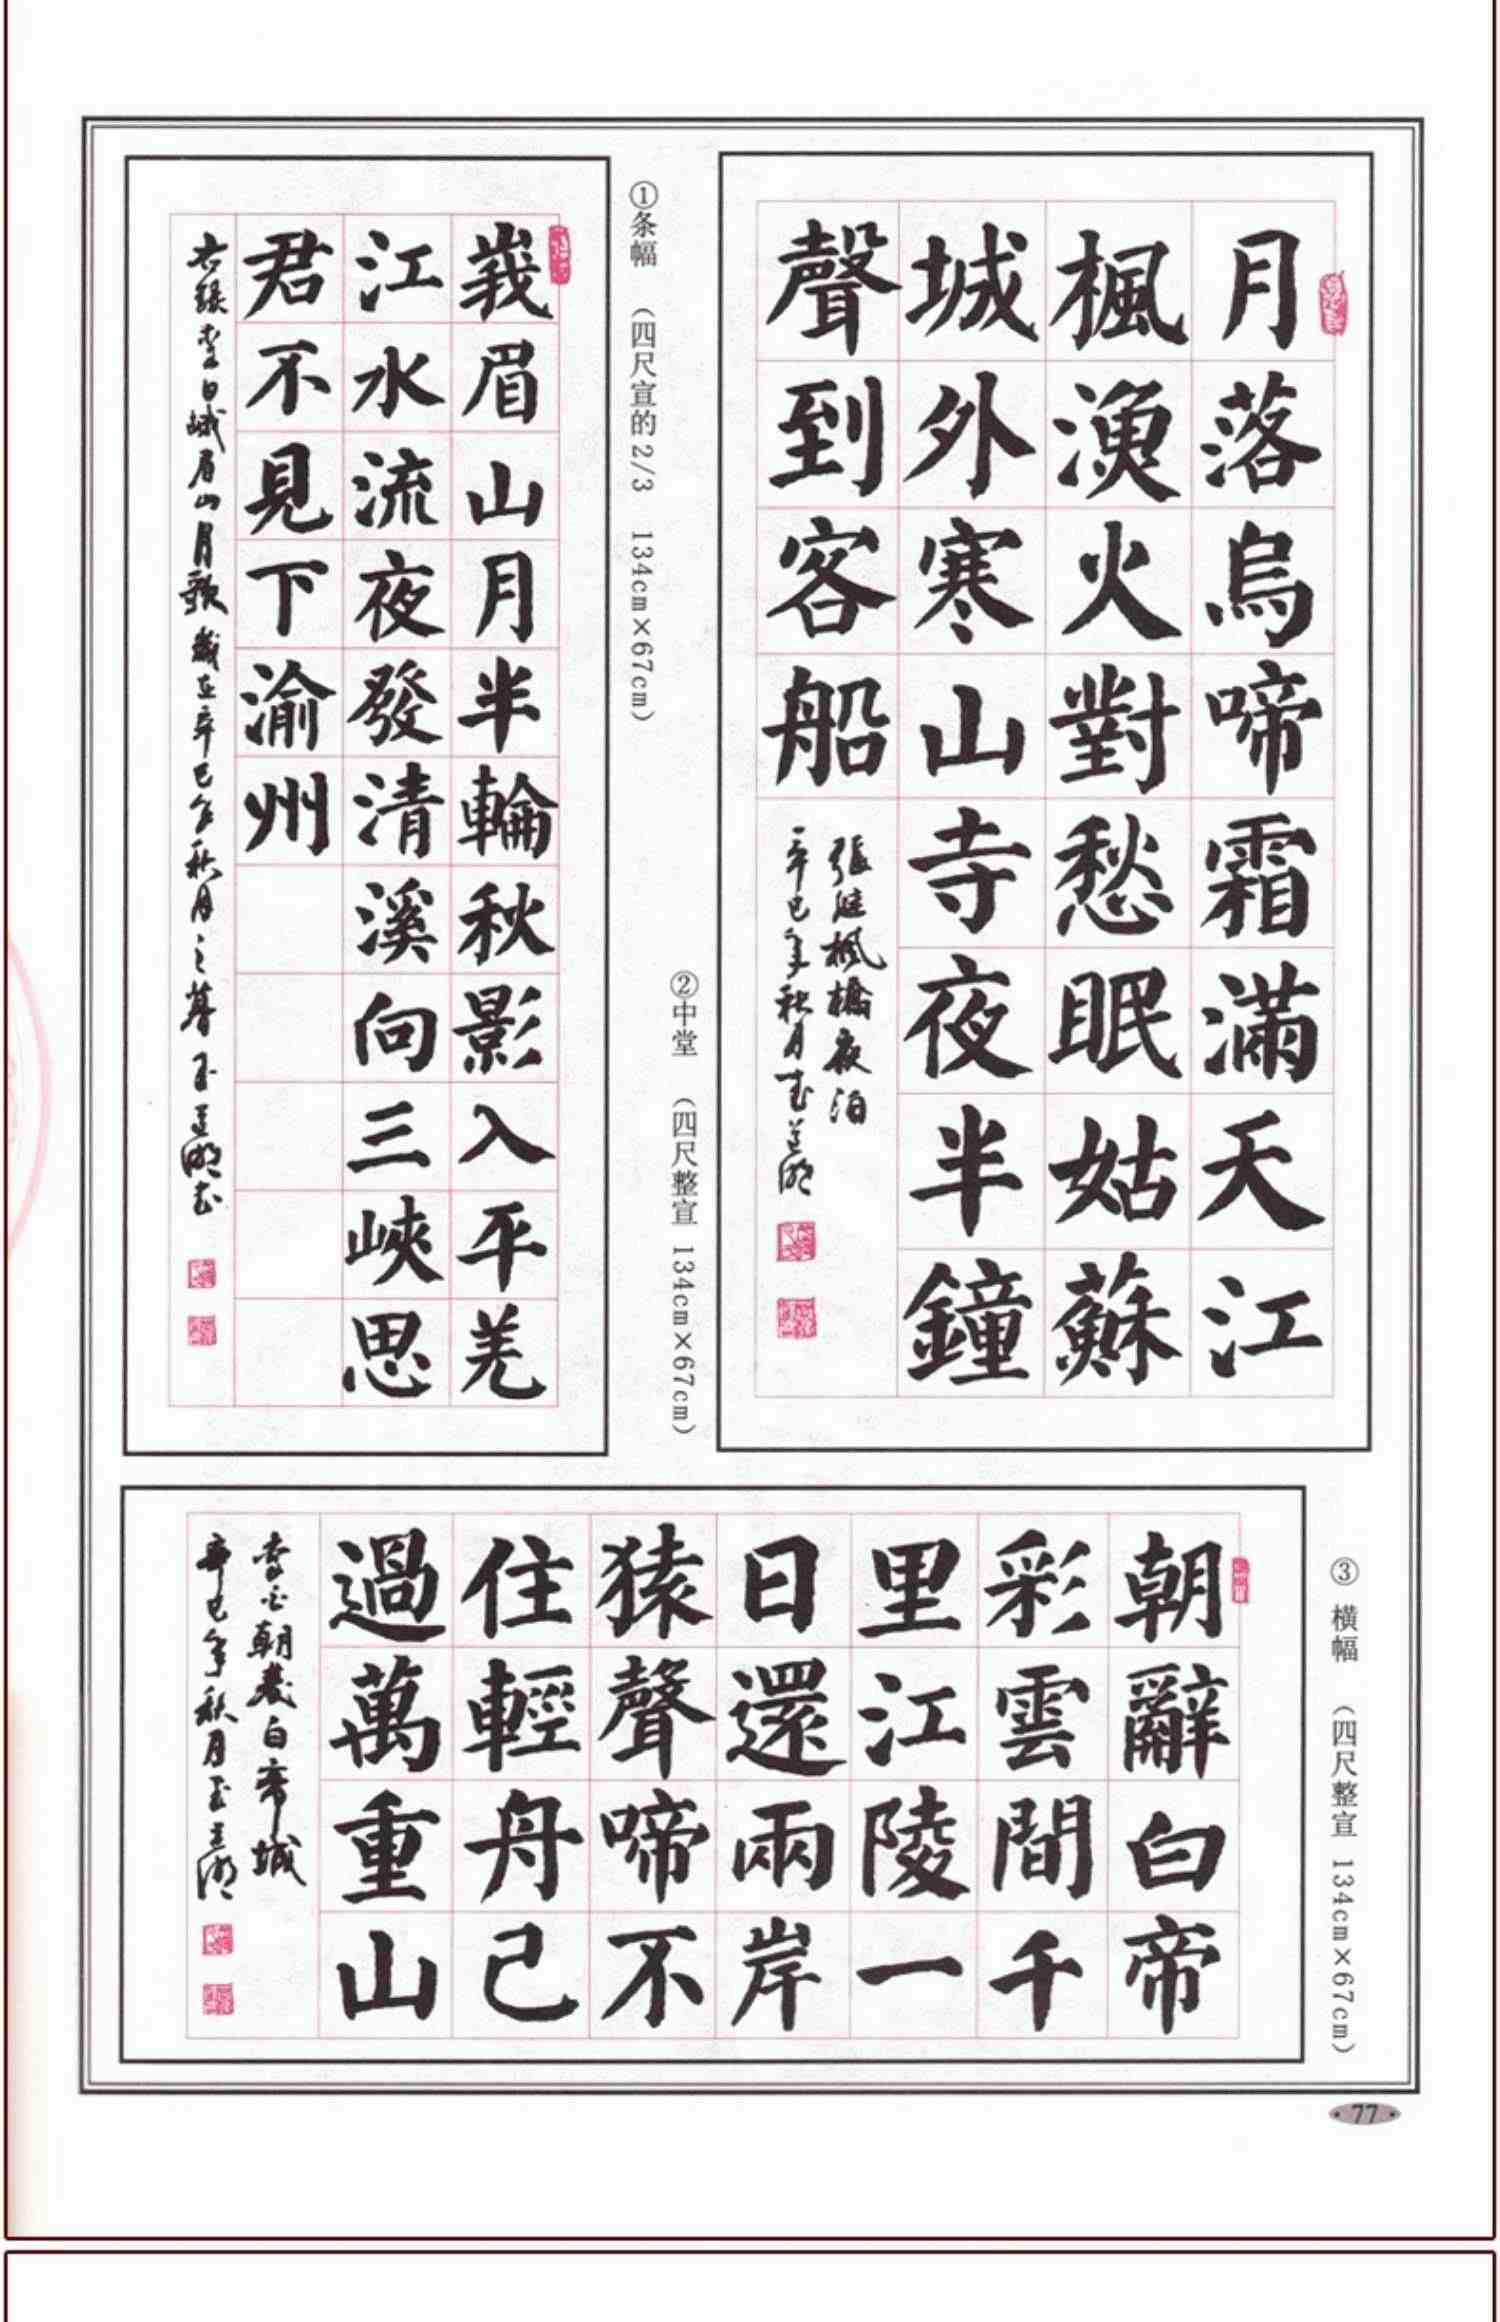 ①条幅 (四尺宣的2/3 134cm×67cm)
峩眉山月半輪秋影入平羌
江水流夜發清溪向三峽思
君不見下渝州
右録李白峨眉山月歌歲在辛巳年秋月之暮玉道湖书
②中堂 (四尺整宣 134cm×67cm)
月落烏啼霜滿天江
楓漁火對愁眠姑蘇
城外寒山寺夜半鐘
聲到客船
張继楓橋夜泊
辛巳年秋月
③ 横幅 (四尺整宣 134cm×67cm)
朝辭白帝
彩雲間千
里江陵一
日還兩岸
猿聲啼不
住輕舟已
過萬重山
李白朝发白帝城
辛巳年秋月
77